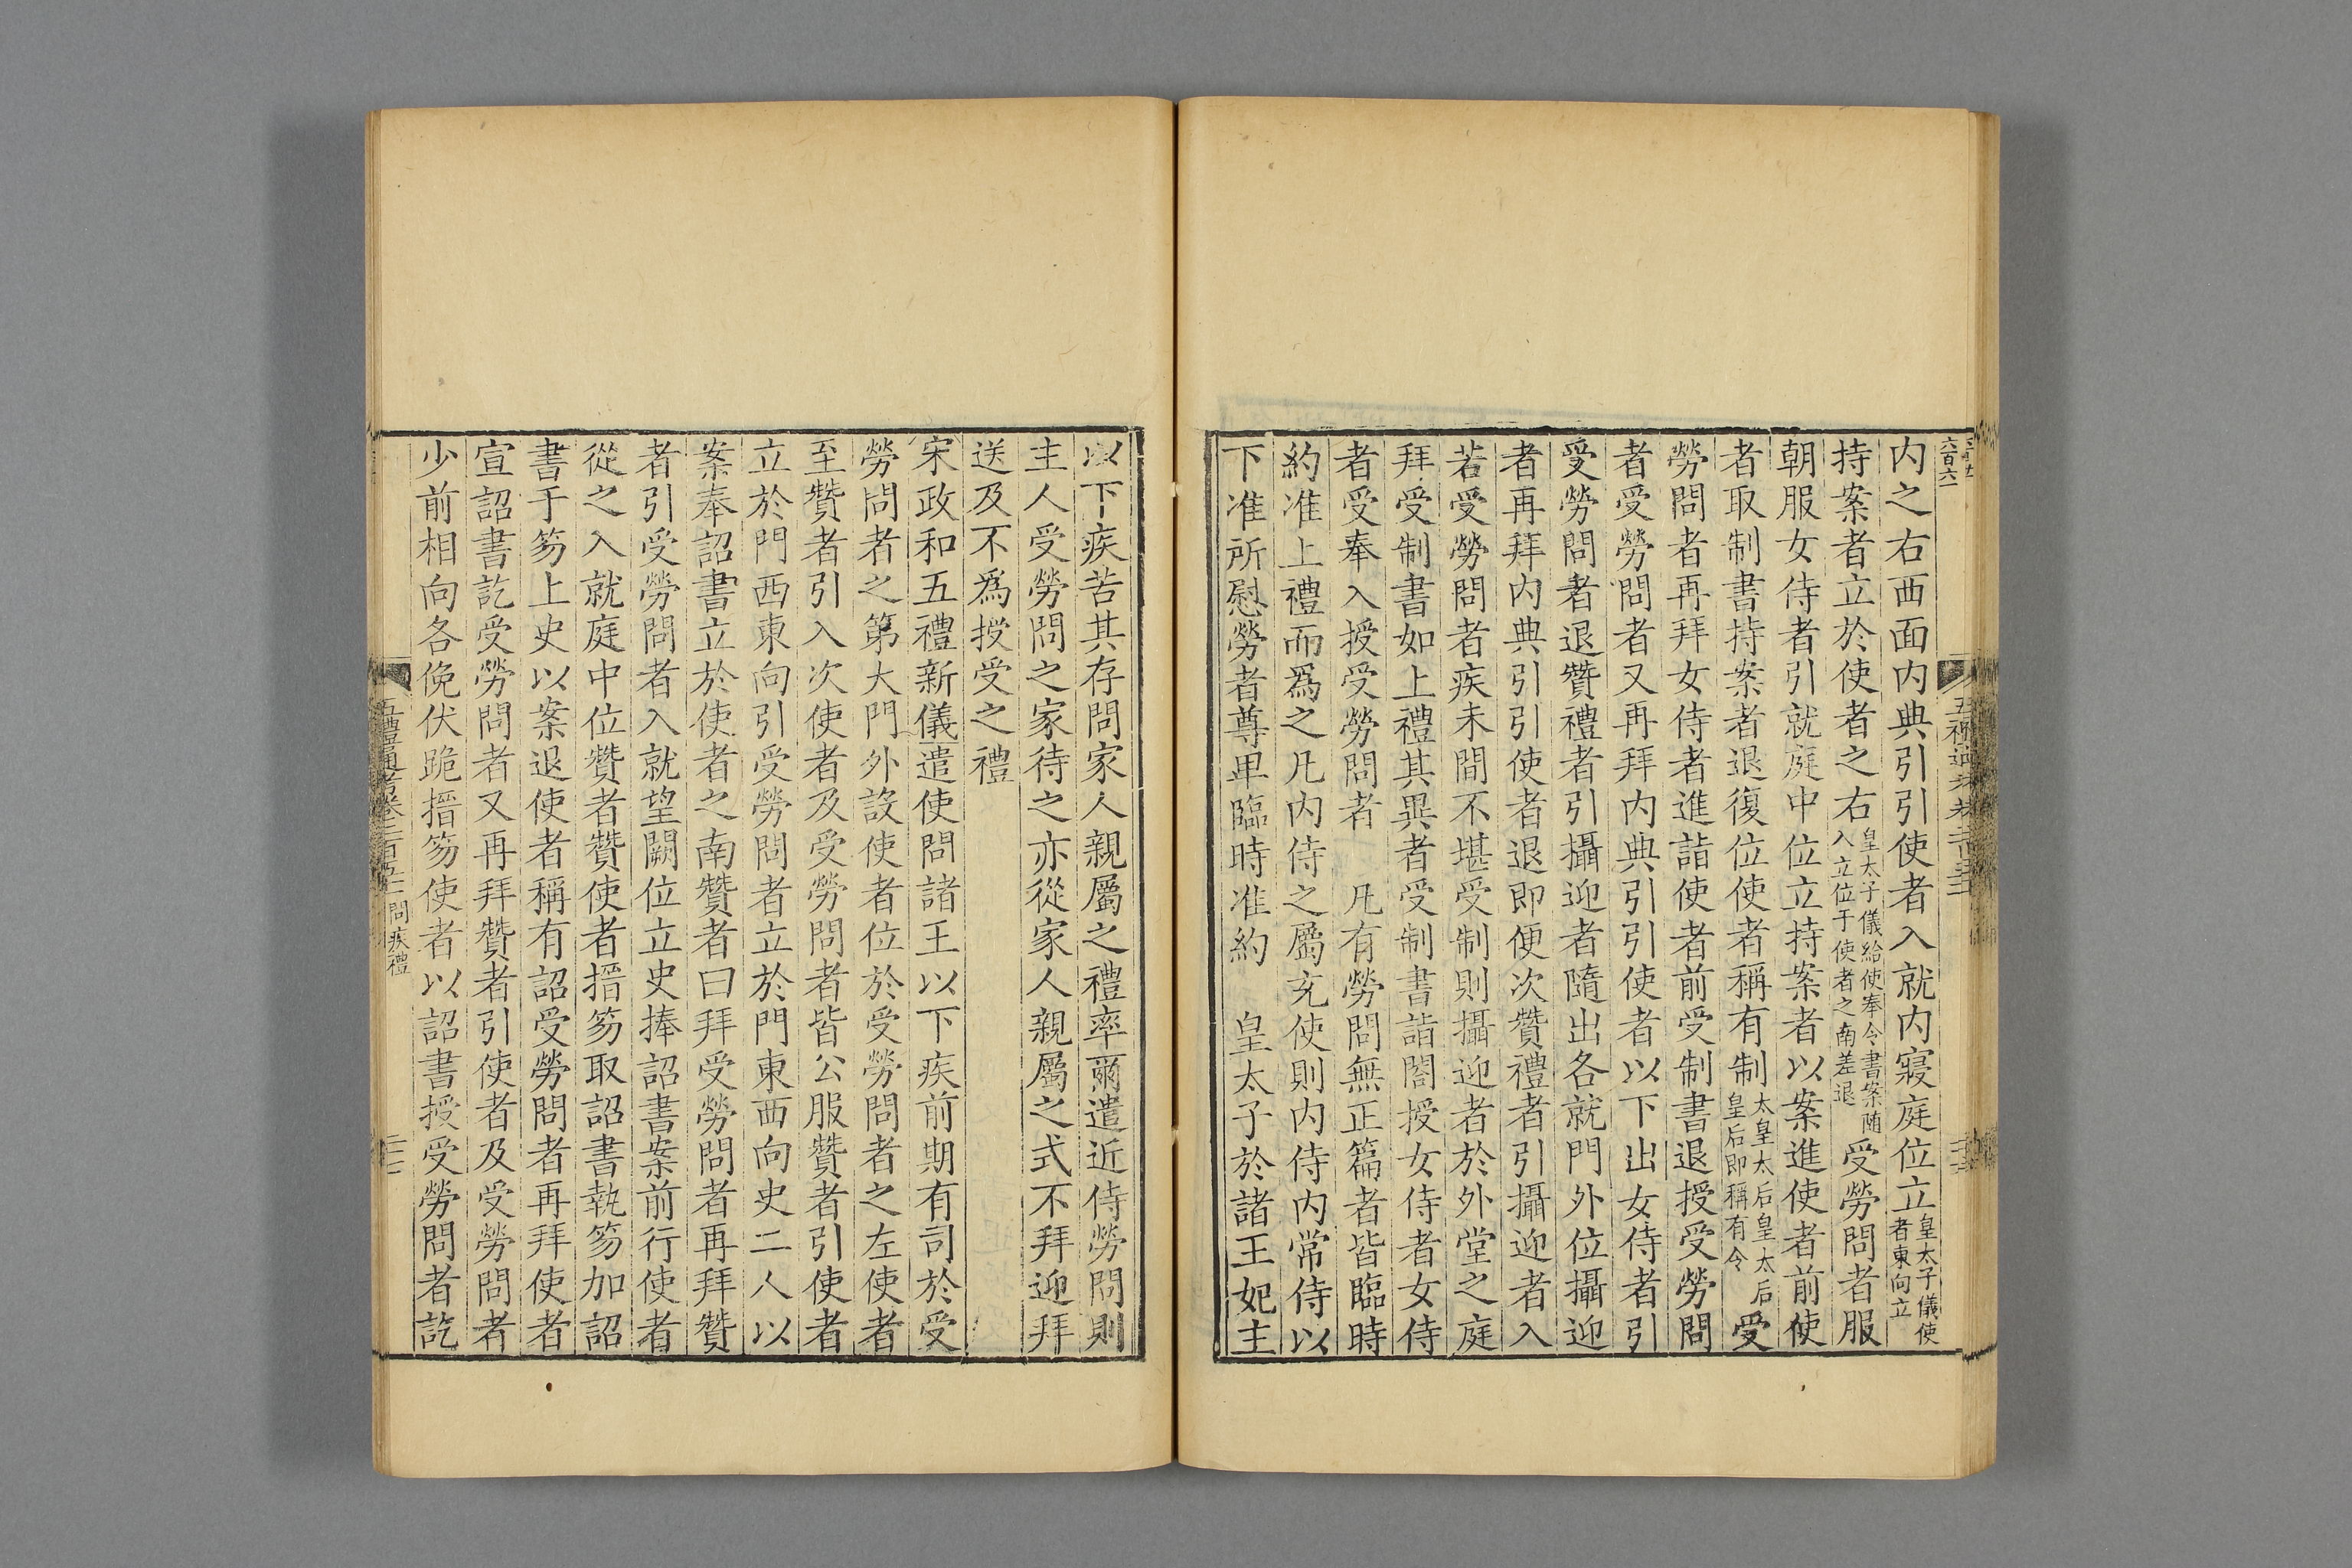 六百六
内之右西面内典引引使者入就内寢庭位立皇太子儀使者東向立
持案者立於使者之右皇太子儀給使奉令書案随入立位于使者之南差退受勞問者服
朝服女侍者引就庭中位立持案者以案進使者前使
者取制書持案者退復位使者稱有制太皇太后皇太后皇后即稱有令受
勞問者再拜女侍者進詣使者前受制書退授受勞問
者受勞問者又再拜内典引引使者以下出女侍者引
受勞問者退贊禮者引攝迎者隨出各就門外位攝迎
者再拜内典引引使者退即便次贊禮者引攝迎者入
若受勞問者疾未間不堪受制則攝迎者於外堂之庭
拜受制書如上禮其異者受制書詣閤授女侍者女侍
者受奉入授受勞問者　凡有勞問無正篇者皆臨時
約准上禮而爲之凡内侍之屬充使則内侍内常侍以
下准所慰勞者尊畢臨時准約　皇太子於諸王妃主
以下疾苦其存問家人親屬之禮率爾遣近侍勞問則
主人受勞問之家待之亦從家人親屬之式不拜迎拜
送及不爲授受之禮
宋政和五禮新儀遣使問諸王以下疾前期有司於受
勞問者之第大門外設使者位於受勞問者之左使者
至贊者引入次使者及受勞問者皆公服贊者引使者
立於門西東向引受勞問者立於門東西向史二人以
案奉詔書立於使者之南贊者曰拜受勞問者再拜贊
者引受勞問者入就望闕位立史捧詔書案前行使者
從之入就庭中位贊者贊使者搢笏取詔書執笏加詔
書于笏上史以案退使者稱有詔受勞問者再拜使者
宣詔書訖受勞問者又再拜贊者引使者及受勞問者
少前相向各俛伏跪搢笏使者以詔書授受勞問者訖
五禮通考卷二百五十一　問疾禮